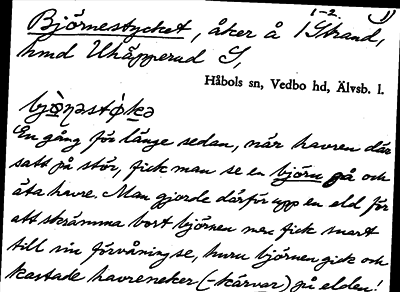 1-2. 1)
Björnestycket, åker å 1 Strand,
hmd Uhäpperud S,
Håbols sn, Vedbo hd, Älvsb. l.
En gång för länge sedan, när havren där
satt på stör, fick man se en björn gå och
äta havre. Man gjorde därför upp en eld för
att skrämma bort björnen men fick snart
till sin förvåning se, huru björnen gick och
kastade havreneker (-kärvar) på elden!